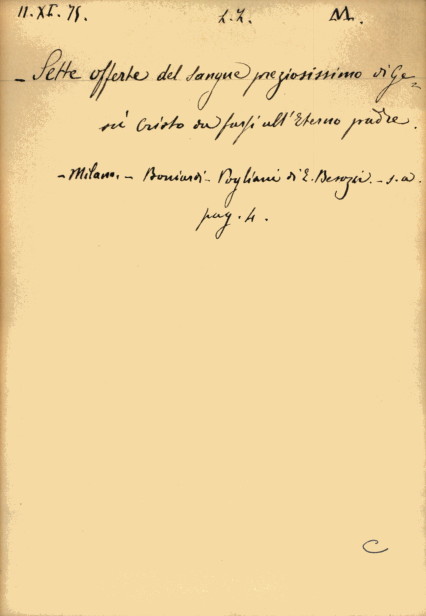 11. XI. 75. L. Z. M.
- Sette offerte del Sangue preziosissimo di Ge=
sù Cristo da farsi all'Eterno padre.
- Milano. - Boniardi - Pogliani di E. Besozzi. - s. a.
pag. 4.
C